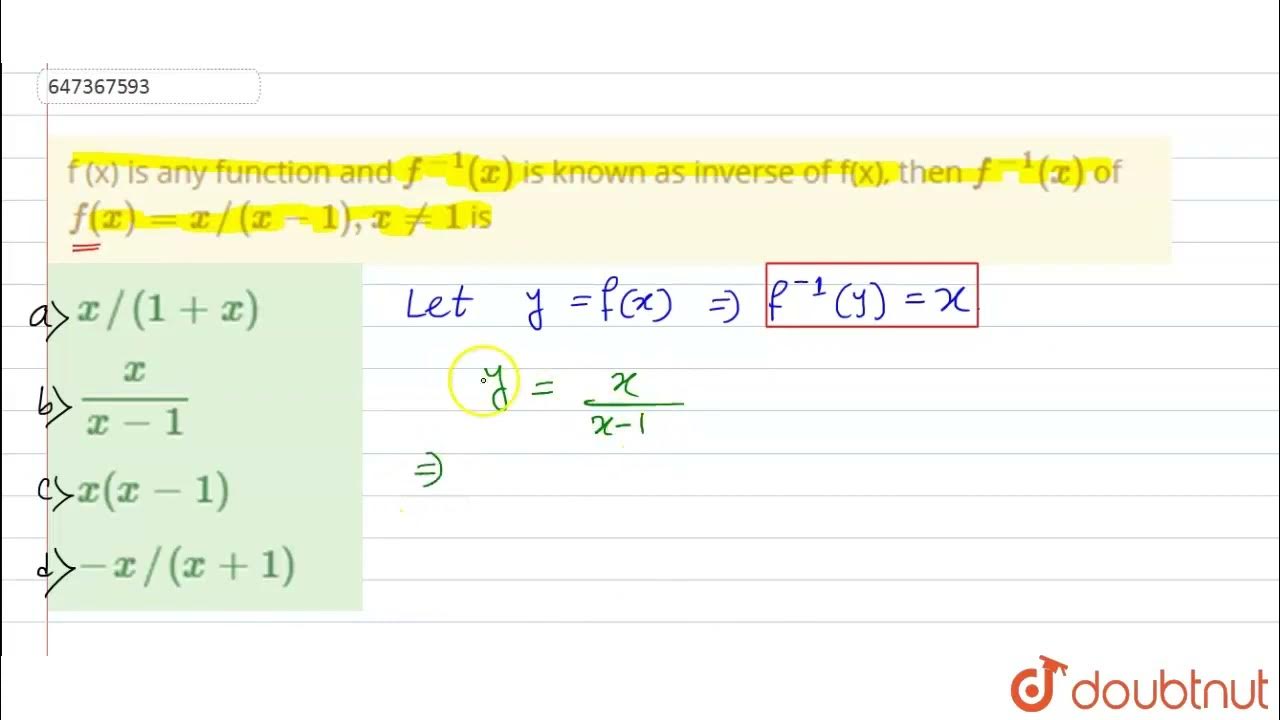 647367593
f (x) is any function and f⁻¹(x) is known as inverse of f(x), then f⁻¹(x) of
f(x) = x/(x − 1), x ≠ 1 is
a) x/(1 + x)
b) x/(x − 1)
c) x(x − 1)
d) −x/(x + 1)
Let y = f(x) ⇒ f⁻¹(y) = x
y = x/(x-1)
⇒
doubtnut